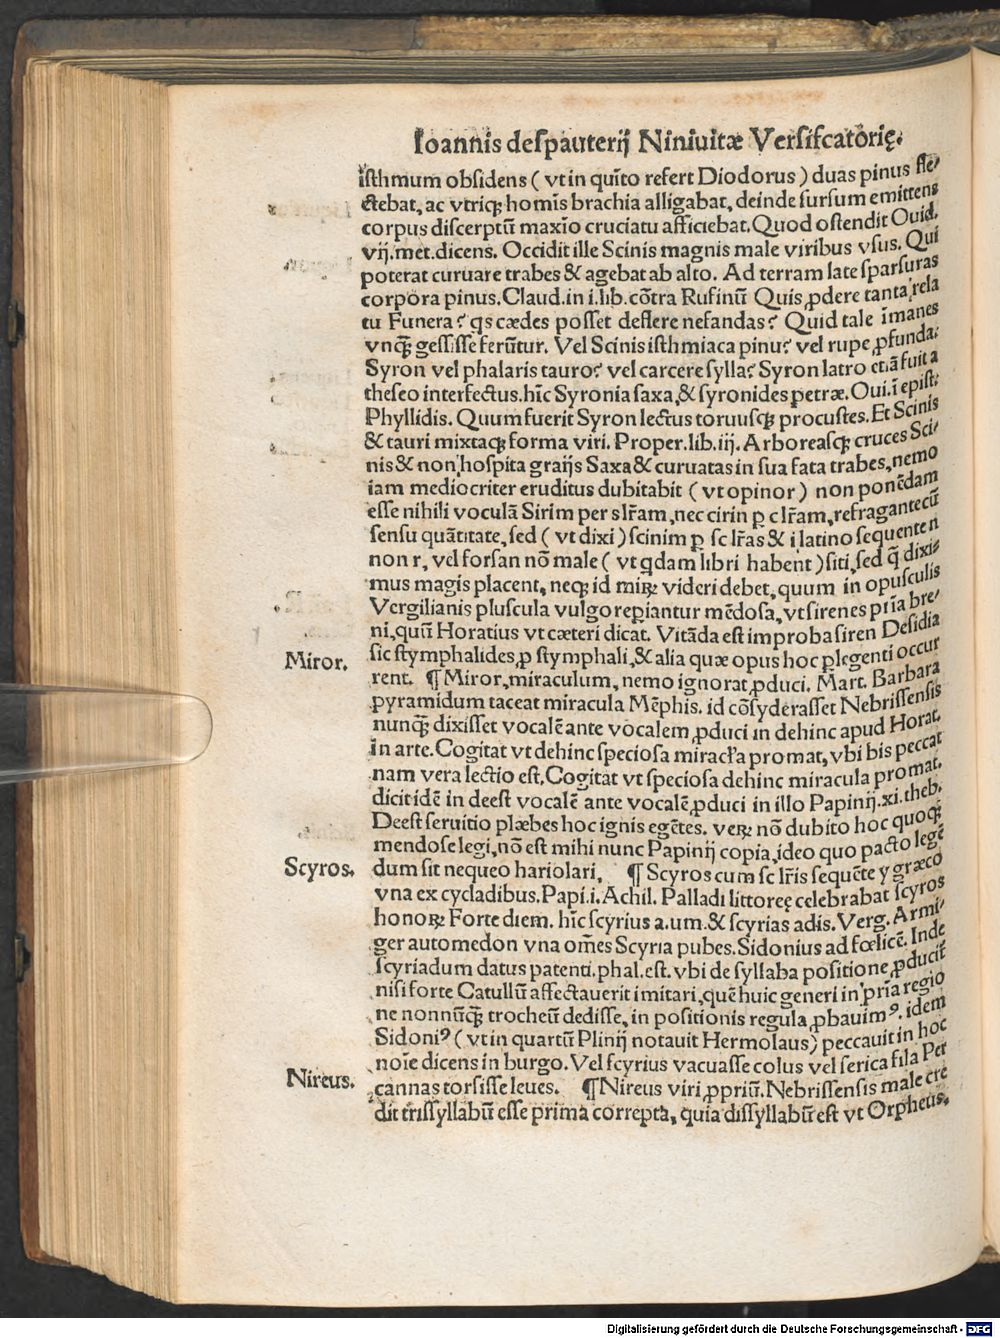 Ioannis despauterij Niniuitæ Versifcatorię.
isthmum obsidens ( vt in quīto refert Diodorus ) duas pinus fle⸗
ctebat, ac vtriqꝫ homīs brachia alligabat, deinde sursum emittens
corpus discerptū maxīo cruciatu afficiebat. Quod ostendit Ouid.
vij. met. dicens. Occidit ille Scinis magnis male viribus vsus. Qui
poterat curuare trabes & agebat ab alto. Ad terram late sparsuras
corpora pinus. Claud. in i. lib. cōtra Rufinū Quis ꝓdere tanta rela
tu Funera? qs cædes posset deflere nefandas? Quid tale īmanes
vnqꝫ gessisse ferūtur. Vel Scinis isthmiaca pinu? vel rupe ꝓfunda.
Syron vel phalaris tauro? vel carcere sylla? Syron latro et iā fuit a
theseo interfectus. hīc Syronia saxa, & syronides petræ. Oui. ī epist.
Phyllidis. Quum fuerit Syron lectus toruusqꝫ procustes. Et Scinis
& tauri mixtaqꝫ forma viri. Proper. lib. iij. Arboreasqꝫ cruces Sci⸗
nis & non hospita graijs Saxa & curuatas in sua fata trabes, nemo
iam mediocriter eruditus dubitabit ( vt opinor ) non ponēdam
esse nihili voculā Sirim per s lr̄am, nec cirin p c lr̄am, refragante cū
sensu quātitate, sed ( vt dixi ) scinim ꝑ sc lr̄as & i latino sequente n
non r, vel forsan nō male ( vt qdam libri habent ) siti, sed q̄ dixi⸗
mus magis placent, neqꝫ id mirꝝ videri debet, quum in opusculis
Vergilianis pluscula vulgo reꝑiantur mēdosa, vt sirenes pria bre⸗
ui, quū Horatius vt cæteri dicat. Vitāda est improba siren Desidia
Miror. sic stymphalides, ꝓ stymphali, & alia quæ opus hoc ꝑlegenti occur
rent. ¶ Miror, miraculum, nemo ignorat ꝓduci. Mart. Barbara
pyramidum taceat miracula Mēphis. id cōsyderasset Nebrissensis
nunqꝫ dixisset vocalē ante vocalem ꝓduci in dehinc apud Horat.
in arte. Cogitat vt dehinc speciosa miracl̄a promat, vbi bis peccat
nam vera lectio est, Cogitat vt speciosa dehinc miracula promat.
dicit idē in deest vocalē ante vocalē ꝓduci in illo Papinij. xi. theb.
Deest seruitio plæbes hoc ignis egētes. verꝝ nō dubito hoc quoqꝫ
mendose legi, nō est mihi nunc Papinij copia, ideo quo pacto legē
Scyros. dum sit nequeo hariolari. ¶ Scyros cum sc lr̄is sequēte y græco
vna ex cycladibus. Papi. i. Achil. Palladi littoreę celebrabat scyros
honorꝝ Forte diem. hīc scyrius a. um. & scyrias adis. Verg. Armi⸗
ger automedon vna om̄es Scyria pubes. Sidonius ad fœlicē. Inde
scyriadum datus patenti. phal. est. vbi de syllaba positione ꝓducit
nisi forte Catullū affectauerit imitari, quē huic generi in pria regio
ne nonnūqꝫ trocheū dedisse, in positionis regula ꝓbauimꝰ. idem
Sidoniꝰ ( vt in quartū Plinij notauit Hermolaus ) peccauit in hoc
noīe dicens in burgo. Vel scyrius vacuasse colus vel serica fila Per
Nireus. cannas torsisse leues. ¶ Nireus viri ꝓpriū. Nebrissensis male cre
dit trissyllabū esse prima correpta, quia dissyllabū est vt Orpheus.
Digitalisierung gefördert durch die Deutsche Forschungsgemeinschaft - DFG